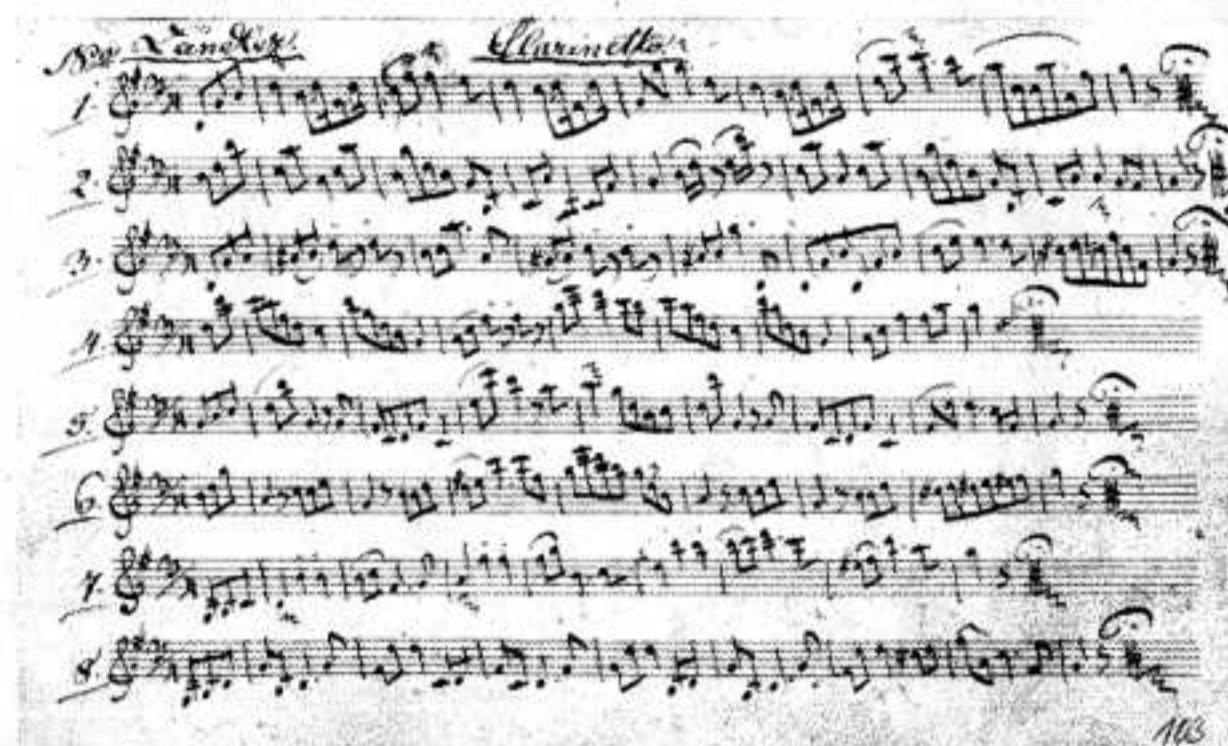 No Landler. Clarinetto.
1.
2.
3.
4.
5.
6.
7.
8.
103